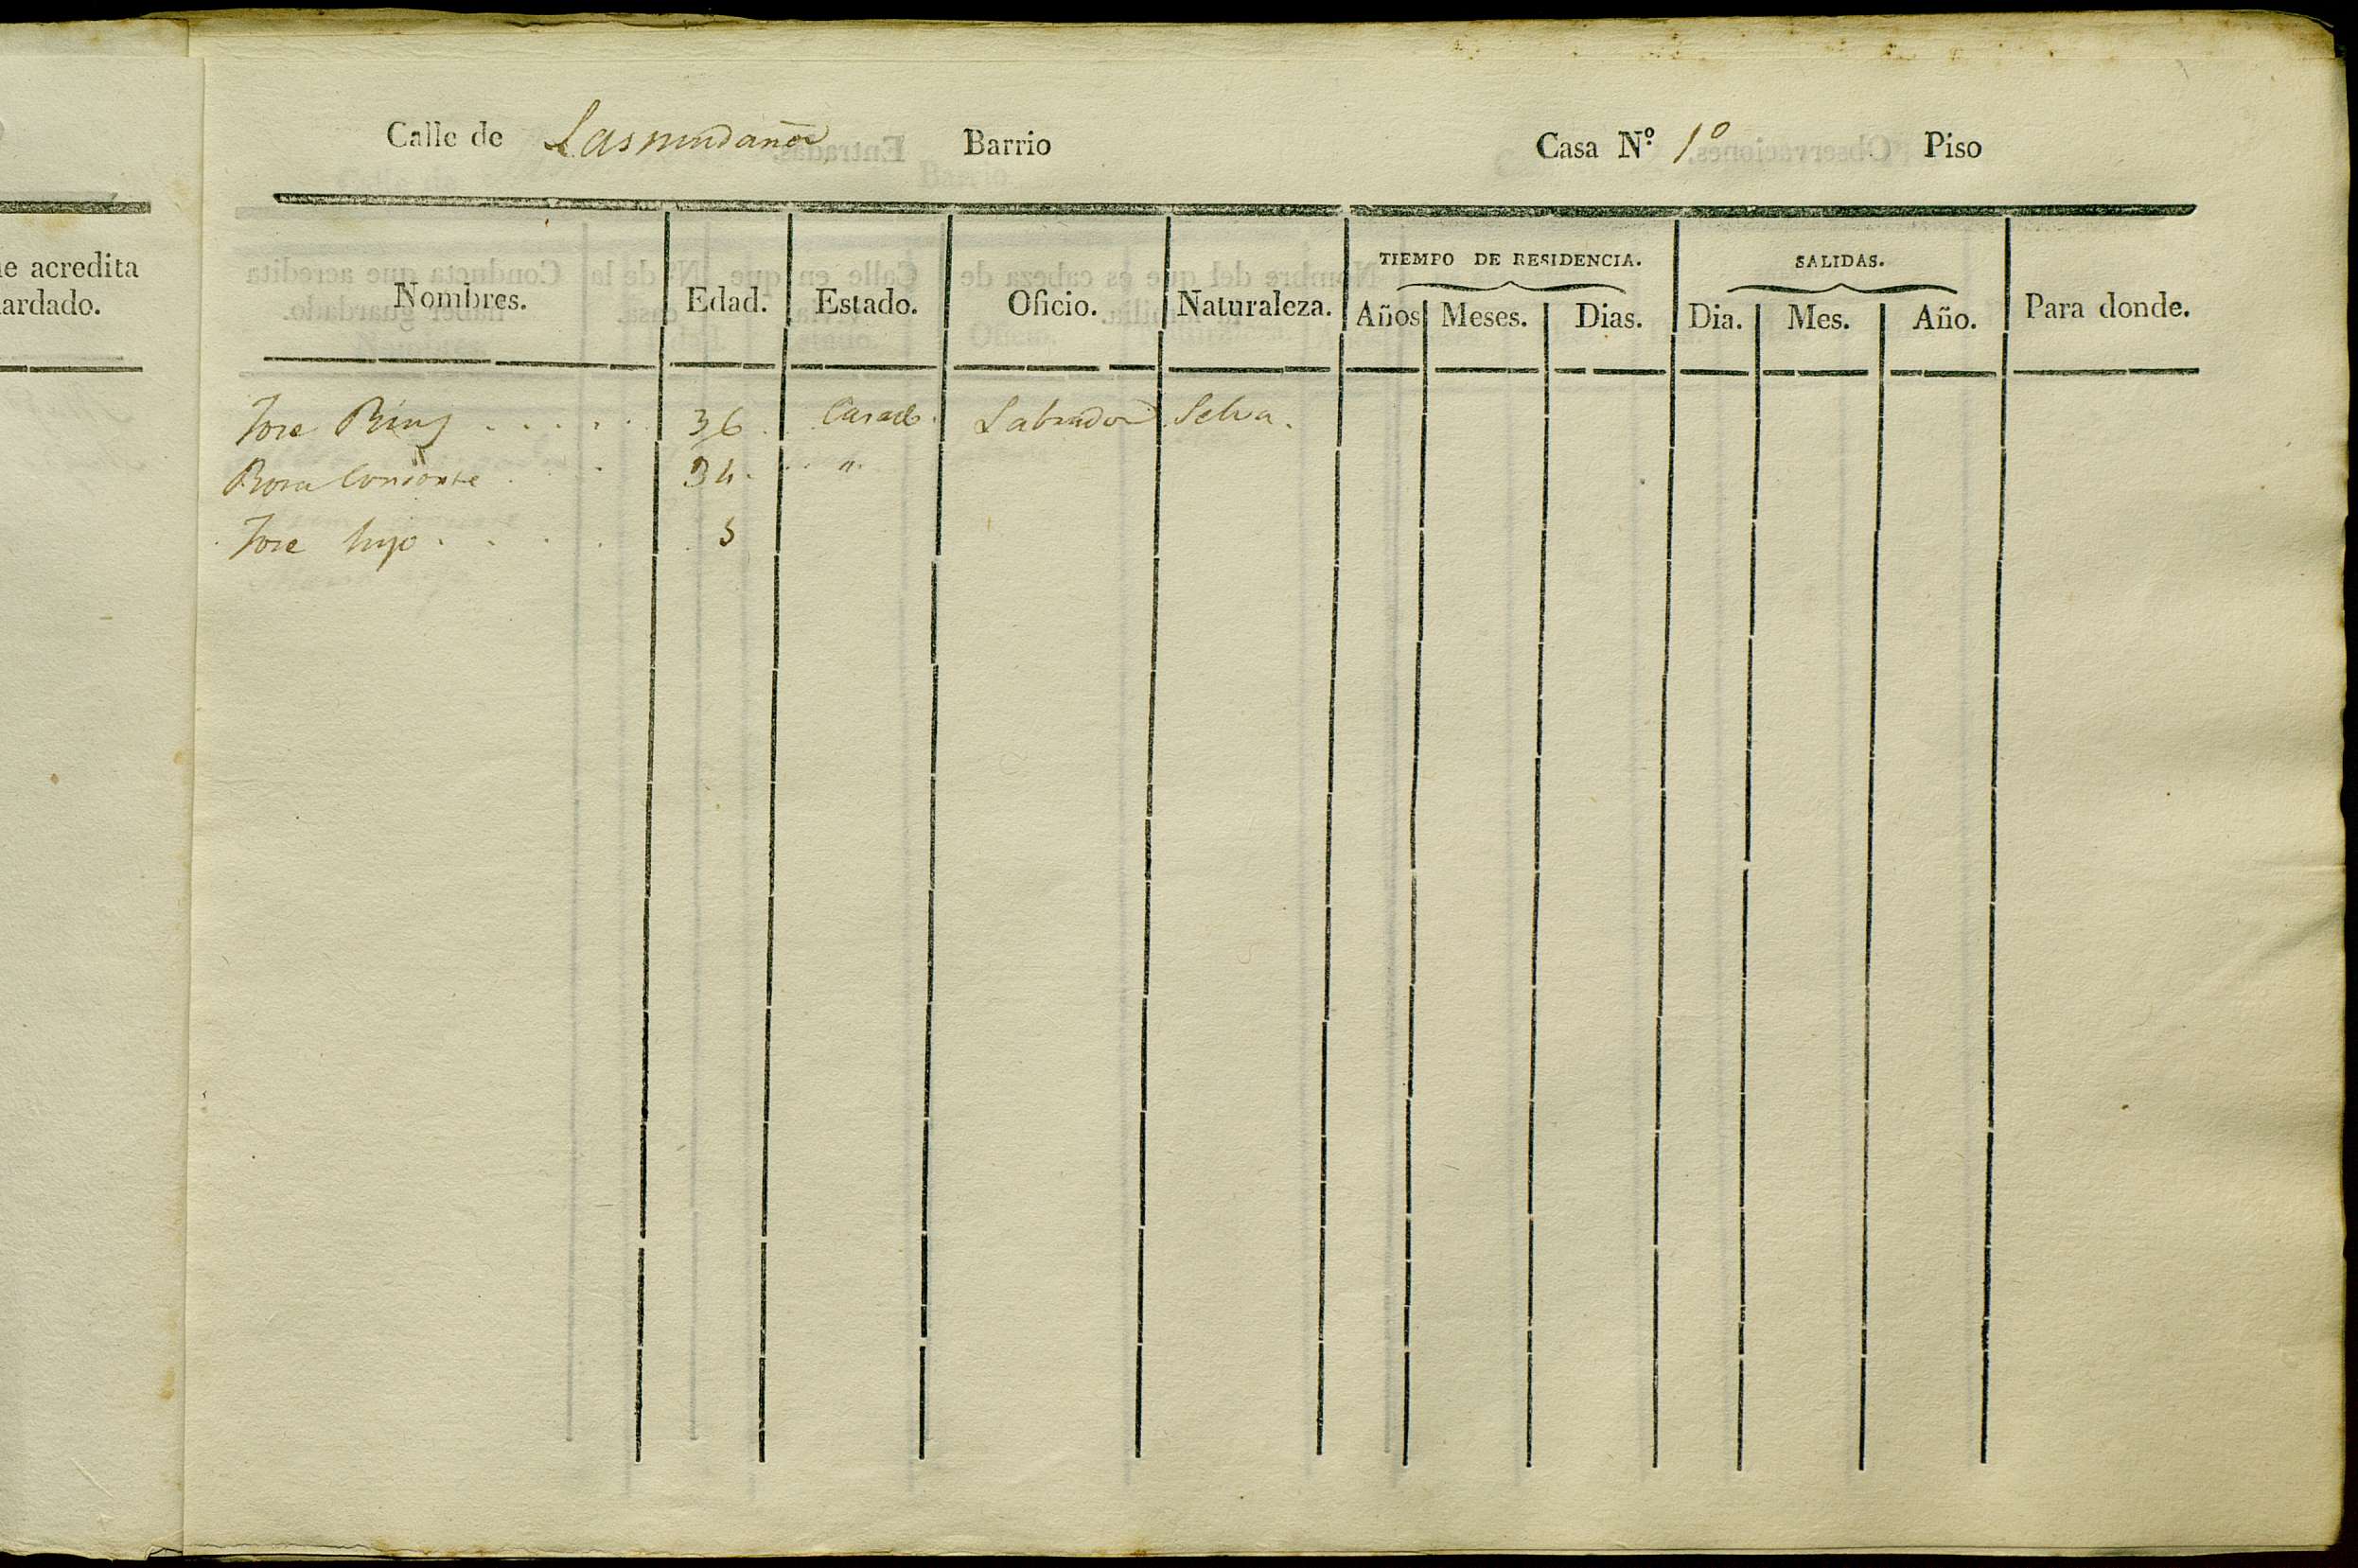 Calle de Barrio Casa Nº 1º Piso
ue acredita
uardado.
TIEMPO DE RESIDENCIA. SALIDAS.
Nombres. Edad. Estado. Oficio. Naturaleza. Años Meses. Dias. Dia. Mes. Año. Para donde.
Jose 36. Casado. Labrador Selva.
Rosa Consorte 34. "
Jose hijo 5